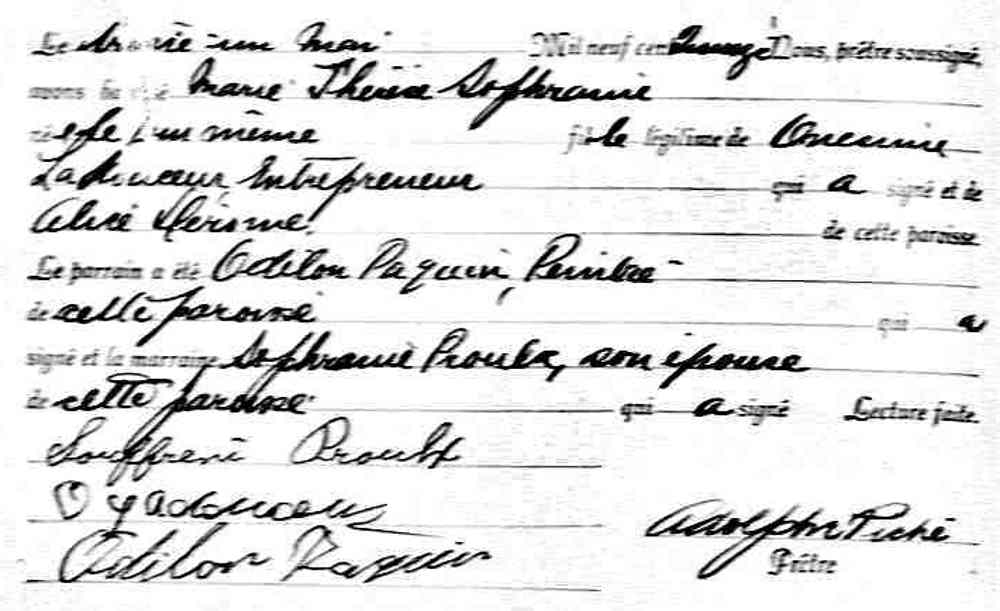 Le trente-un mai Mil neuf cent quinze Nous, prêtre soussigné,
avons baptisé Marie Thérèse Sophranie
née le même fille légitime de Onésime
Ladouceur, Entrepreneur qui a signé et de
Alice Jérome. de cette paroisse.
Le parrain a été Odilon Paquin, Peintre
de cette paroisse qui a
signé et la marraine Sophranie Proulx, son épouse
de cette paroisse qui a signé Lecture faite.
Souffreni Proulx
O Ladouceur
Odilon Paquin
Adolphe Piché
Prêtre